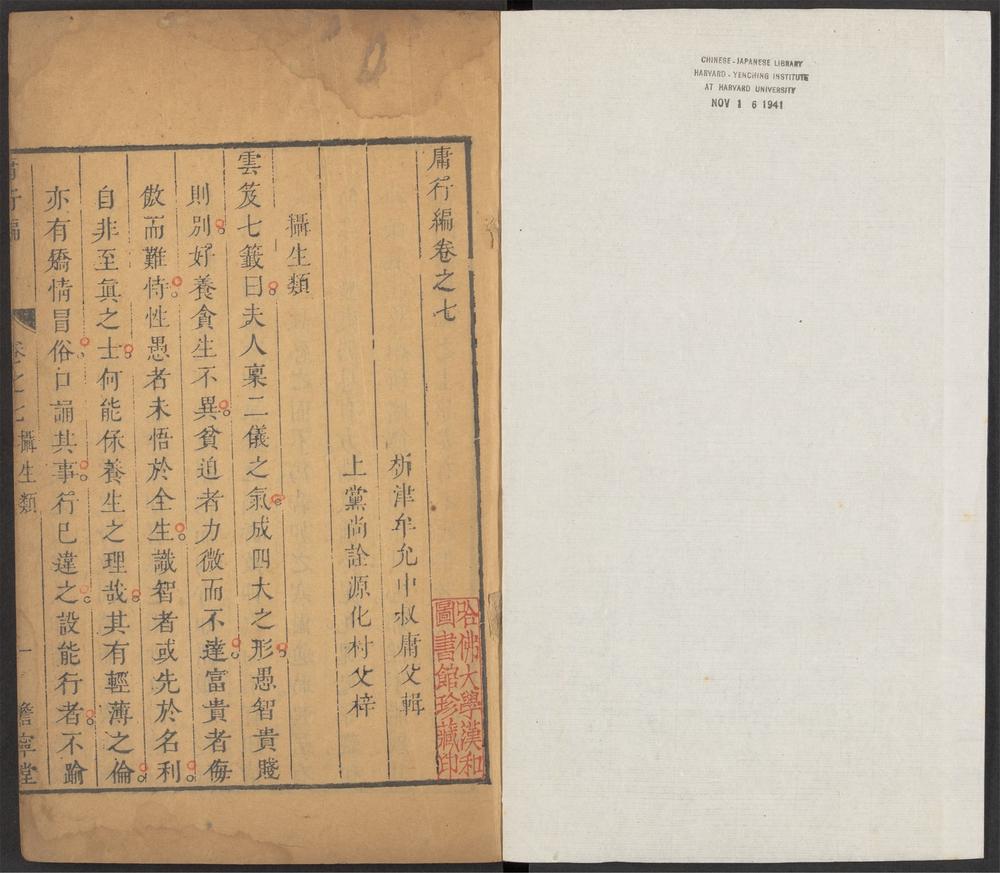 CHINESE - JAPANESE LIBRARY
HARVARD - YENCHING INSTITUTE
AT HARVARD UNIVERSITY
NOV 1 6 1941
庸行編卷之七
析津牟允中叔庸父輯
上黨尚詮源化村父梓
攝生類
雲笈七籤曰夫人稟二儀之氣成四大之形愚智貴賤
則別好養貪生不異貧迫者力微而不達富貴者侮
傲而難恃性愚者未悟於全生識智者或先於名利
自非至眞之士何能保養生之理哉其有輕薄之倫
亦有矯情冒俗口誦其事行已違之設能行者不踰
哈佛大學漢和
圖書館珍藏印
行編
卷之七攝生類
一
堂